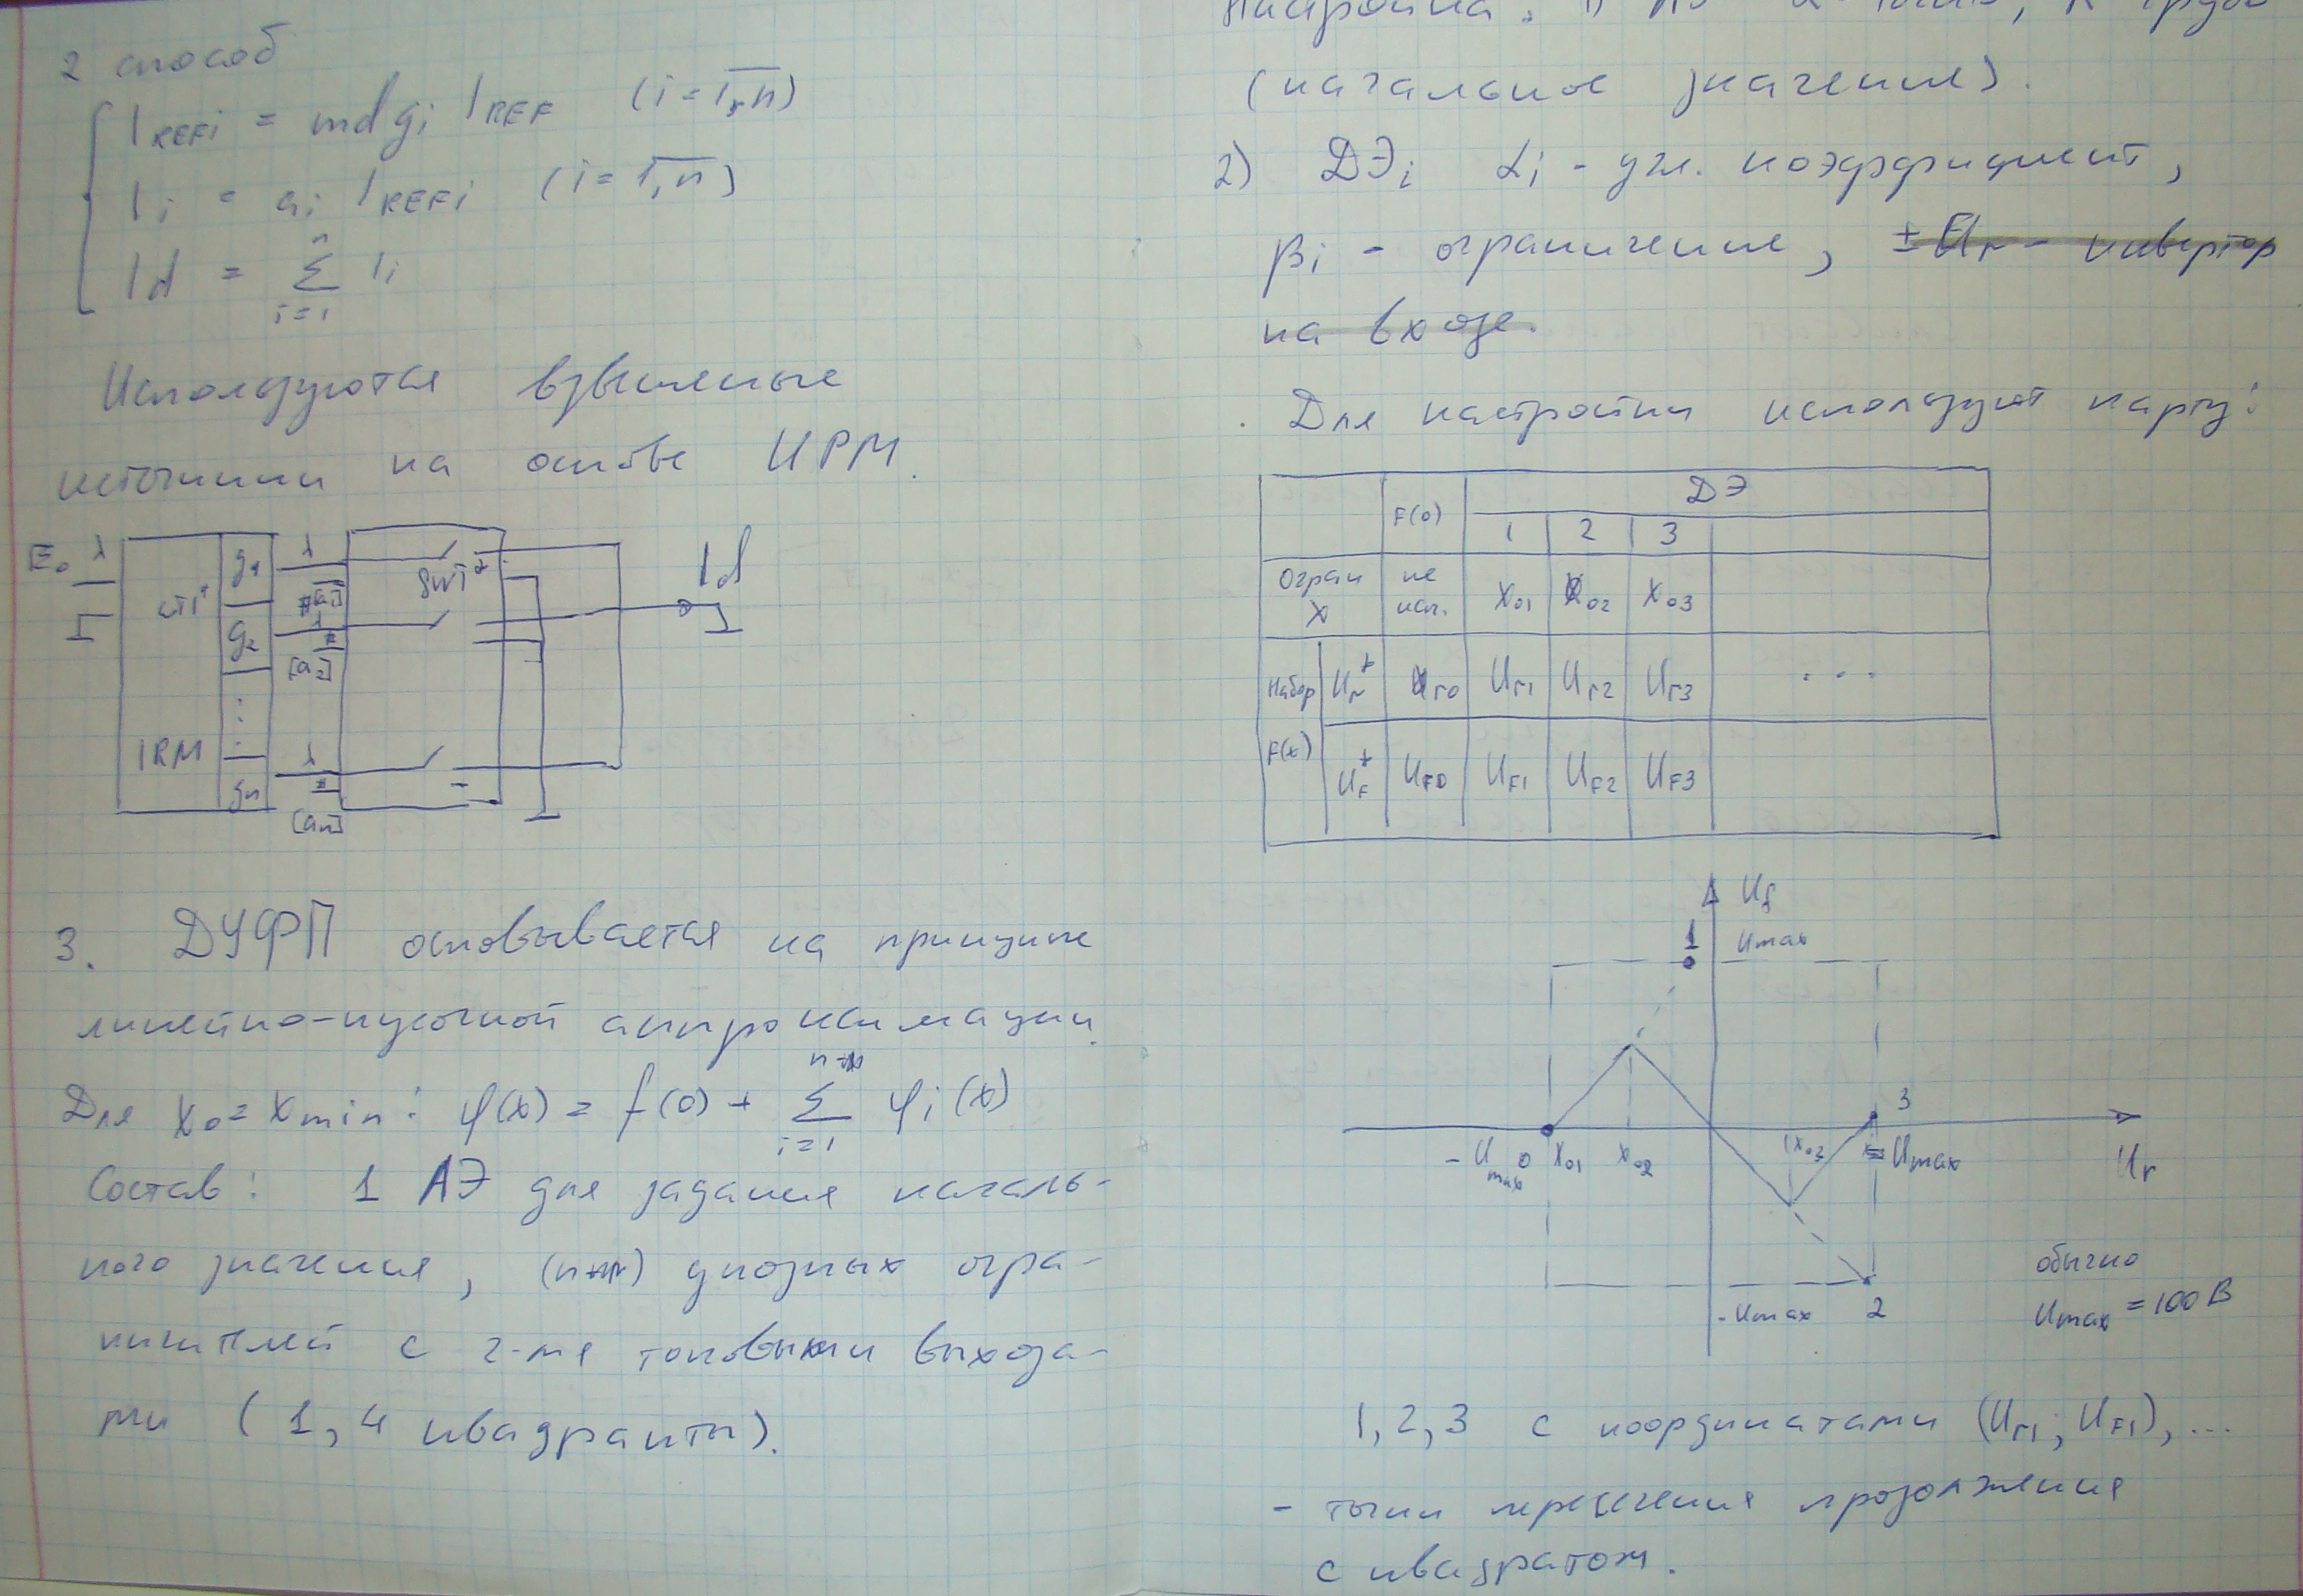 2 способ
I REFi = mdgi I REF (i = 1,n)
Ii = ai I REFi (i = 1,n)
Id = n Σ i=1 Ii
Используются взвешенные
источники на основе ИРМ.
E0 λ g1 λ SWT Id
[a1]
g2 λ
[a2]
⋮
IRM λ
gn
[an]
3. ДУФП основывается на принципе
линейно-кусочной аппроксимации.
Для x0 = xmin: φ(x) = f(0) + Σ i=1 φi(x)
Состав: 1 АЭ для задания началь-
ного значения, диодных огра-
ничителей с 2-мя токовыми выхода-
ми (1,4 квадранты).
Настройка.
(начальное значение).
2) ДЭi αi - уж. коэффициент,
βi - ограничение, ± - инвертор
на входе.
Для настройки используют карту:
F(0) ДЭ
1 2 3
Огран X не исп. X01 X02 X03
Набор Ur+ Ur0 Ur1 Ur2 Ur3 ...
F(x) UF+ UF0 UF1 UF2 UF3
Uf
1 Umax
3
-Umax 0 X01 X02 X03 Umax Ur
-Umax 2
обычно
Umax = 100 В
1, 2, 3 с координатами (Ur1; UF1), ...
- точки пересечения продолжения
с квадратом.